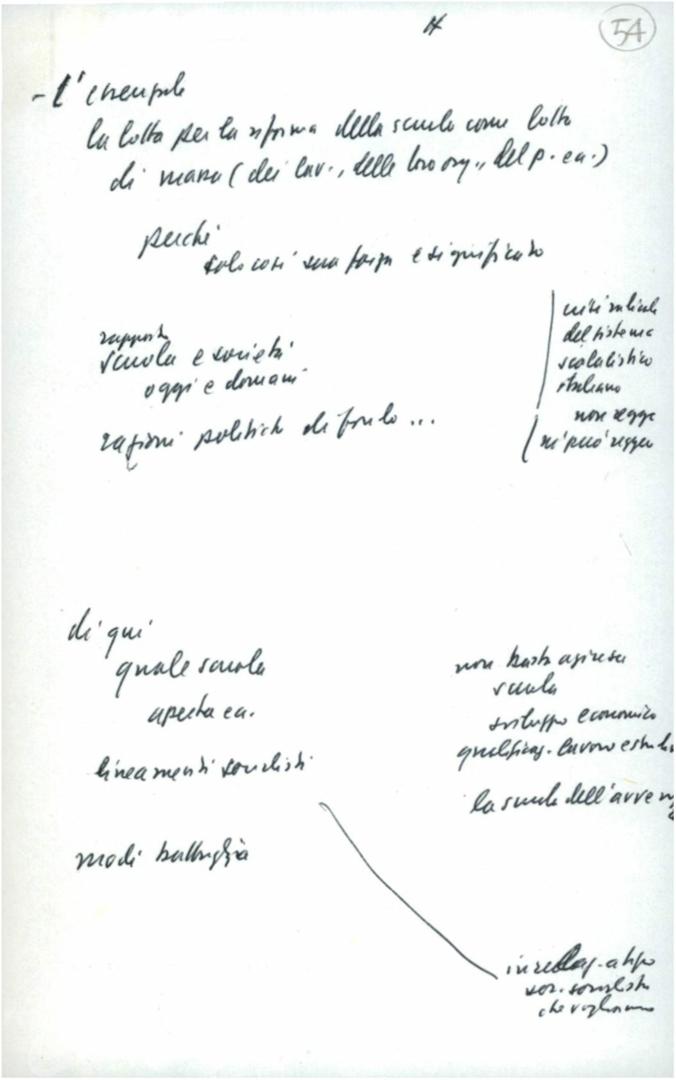 54
- L'esempio
la lotta per la riforma della scuola come lotta
di massa (dei lav., delle loro org., del p. ecc.)
perché
solo così sua forza e significato
rapporto
scuola e società
oggi e domani
ragioni politiche di fondo ...
crisi radicale
del sistema
scolastico
italiano
non regge
né può reggere
di qui
quale scuola
aperta ecc.
lineamenti socialisti
modi battaglia
non basta agire su
scuola
sviluppo economico
qualificaz. lavoro e studio
la scuola dell'avve
in relaz. a tipo
soc. socialista
che vogliamo